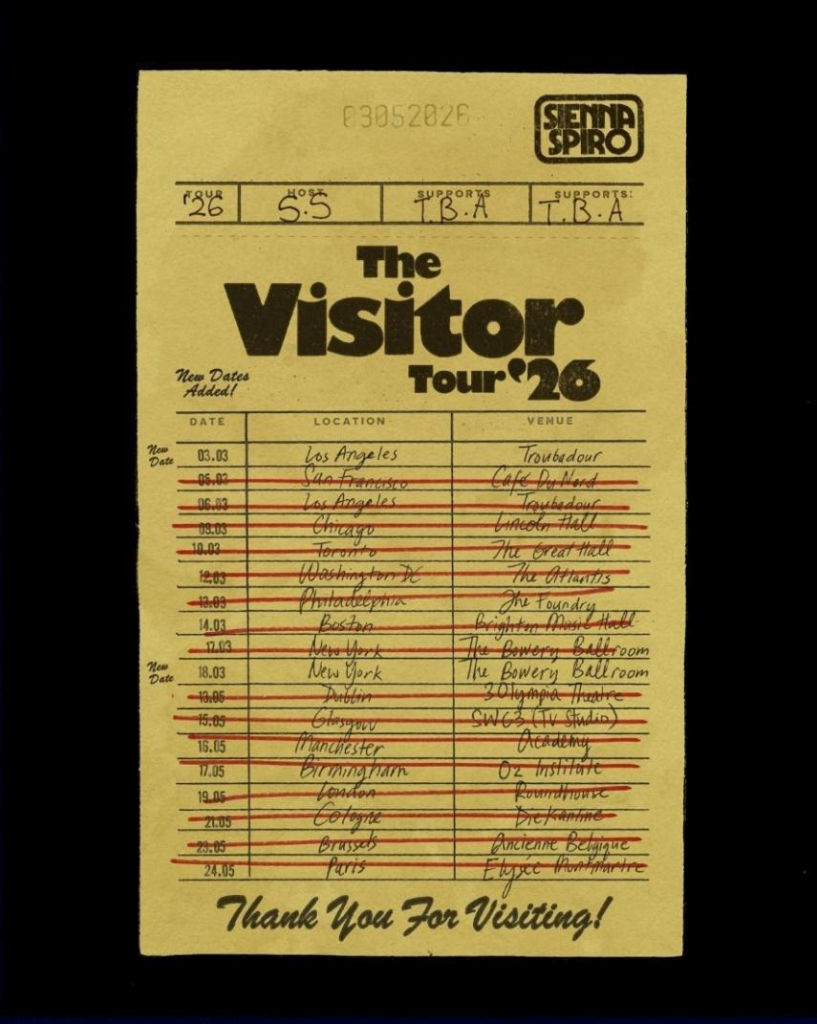 03052026
SIENNA
SPIRO
TOUR HOST SUPPORTS SUPPORTS:
'26 S.S T.B.A T.B.A
The
Visitor
Tour '26
New Dates
Added!
DATE LOCATION VENUE
New Date 03.03 Los Angeles Troubadour
05.03 San Francisco Café Du Nord
06.03 Los Angeles Troubadour
09.03 Chicago Lincoln Hall
10.03 Toronto The Great Hall
12.03 Washington DC The Atlantis
13.03 Philadelphia The Foundry
14.03 Boston Brighton Music Hall
17.03 New York The Bowery Ballroom
New Date 18.03 New York The Bowery Ballroom
13.05 Dublin 3Olympia Theatre
15.05 Glasgow SWG3 (TV Studio)
16.05 Manchester Academy
17.05 Birmingham O2 Institute
19.05 London Roundhouse
21.05 Cologne Die Kantine
23.05 Brussels Ancienne Belgique
24.05 Paris Elysée Montmartre
Thank You For Visiting!